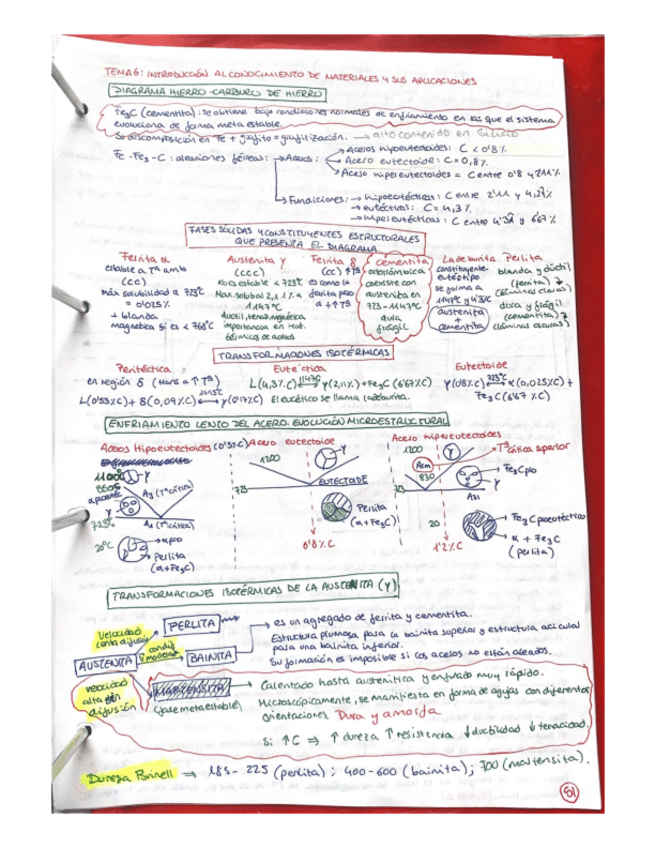 TEMA 6: INTRODUCCIÓN AL CONOCIMIENTO DE MATERIALES Y SUS APLICACIONES
DIAGRAMA HIERRO-CARBURO DE HIERRO
Fe3C (cementita): se obtiene bajo condiciones normales de enfriamiento en las que el sistema
evoluciona de forma metaestable.
Su descomposición en Fe + grafito = grafitización. → alto contenido en silicio
Fe-Fe3-C: aleaciones férreas: → Aceros: → Aceros hipoeutectoides: C < 0'8%
→ Acero eutectoide: C = 0,8%
→ Acero hipereutectoides = C entre 0'8 y 2'11%
→ Fundiciones: → hipoeutécticas: C entre 2'11 y 4,3%
→ eutécticas: C = 4,3%
→ hipereutécticas: C entre 4'3 y 6'67%
FASES SÓLIDAS Y CONSTITUYENTES ESTRUCTURALES
QUE PRESENTA EL DIAGRAMA
Ferrita α
estable a Tª amb
(CC)
máx solubilidad a 723º
= 0'025%
+ blanda
magnética si es < 768ºC
Austenita γ
(CCC)
no es estable < 723ºC
Max. solubil 2,11% a
1147ºC
dúctil, tenaz,
importancia en trat.
térmicos de aceros
Ferrita δ
(CC) ↑Tª
es como la
ferrita pero
a + ↑Tª
cementita
ortorrómbica
coexiste con
austenita en
723 - 1147ºC
dura
frágil
Ledeburita
constituyente
eutéctico
se forma a
1147ºC y 4'3%C
austenita
+
cementita
Perlita
blanda y dúctil
(ferrita)
(láminas claras)
dura y frágil
(cementita)
(láminas oscuras)
TRANSFORMACIONES ISOTÉRMICAS
Peritéctica
en región δ (Hierro a ↑Tª)
L(0'53%C) + δ(0,09%C) ⟷ γ(0'17%C)
Eutéctica
L(4,3%C) ⟷ 1147º γ(2,11%) + Fe3C(6'67%C)
El eutéctico se llama ledeburita.
Eutectoide
γ(0'8%C) ⟷ 723º α(0,025%C) +
Fe3C(6'67%C)
ENFRIAMIENTO LENTO DEL ACERO. EVOLUCIÓN MICROESTRUCTURAL
Aceros Hipoeutectoides
1100ºC
γ
A3 (Tª crítica)
γ
A1 (Tª crítica)
723ºC
20ºC
α pro
Perlita
(α + Fe3C)
Acero eutectoide
1200
γ
EUTECTOIDE
723
Perlita
(α + Fe3C)
0'8%C
Acero hipereutectoides
1200
γ
Tª crítica superior
Acm
830
Fe3C pro
γ
723
20
Fe3C proeutéctico
α + Fe3C
(perlita)
1'2%C
TRANSFORMACIONES ISOTÉRMICAS DE LA AUSTENITA (γ)
Velocidad
lenta difusión
PERLITA
→ es un agregado de ferrita y cementita.
Estructura plumosa para la bainita superior y estructura acicular
para una bainita inferior.
AUSTENITA
BAINITA
Su formación es imposible si los aceros no están aleados.
velocidad
alta sin
difusión
MARTENSITA
(fase metaestable)
→ Calentado hasta austenítica y enfriado muy rápido.
Microscópicamente, se manifiesta en forma de agujas con diferentes
orientaciones. Dura y amorfa
Si ↑C ⇒ ↑ dureza ↑ resistencia ↓ ductilidad ↓ tenacidad.
Dureza Brinell ⇒ 185 - 225 (perlita); 400-600 (bainita); 700 (martensita).